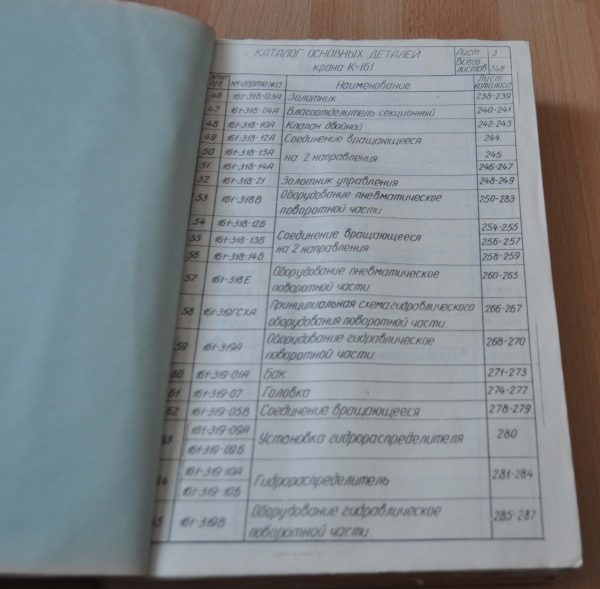 КАТАЛОГ ОСНОВНЫХ ДЕТАЛЕЙ
крана К-161
Лист 3
Всего
листов
№ чертежа Наименование Лист
каталога
46 161-318-03А Золотник 238-239
47 161-318-04А Влагоотделитель секционный 240-241
48 161-318-10А Клапан двойной 242-243
49 161-318-12А Соединение вращающееся 244
50 161-318-13А на 2 направления 245
51 161-318-14А 246-247
52 161-318-21 Золотник управления 248-249
53 161-318В Оборудование пневматическое
поворотной части 250-283
54 161-318-12Б 254-255
55 161-318-13Б Соединение вращающееся
на 2 направления 256-257
56 161-318-14Б 258-259
57 161-318Е Оборудование пневматическое
поворотной части 260-265
58 161-319ГСХА Принципиальная схема гидравлического
оборудования поворотной части. 266-267
59 161-319А Оборудование гидравлическое
поворотной части. 268-270
60 161-319-01А Бак 271-273
61 161-319-07 Головка 274-277
62 161-319-05В Соединение вращающееся 278-279
63 161-319-09А
161-319-09Б Установка гидрораспределителя 280
161-319-10А
161-319-10Б Гидрораспределитель 281-284
161-319В Оборудование гидравлическое
поворотной части. 285-287